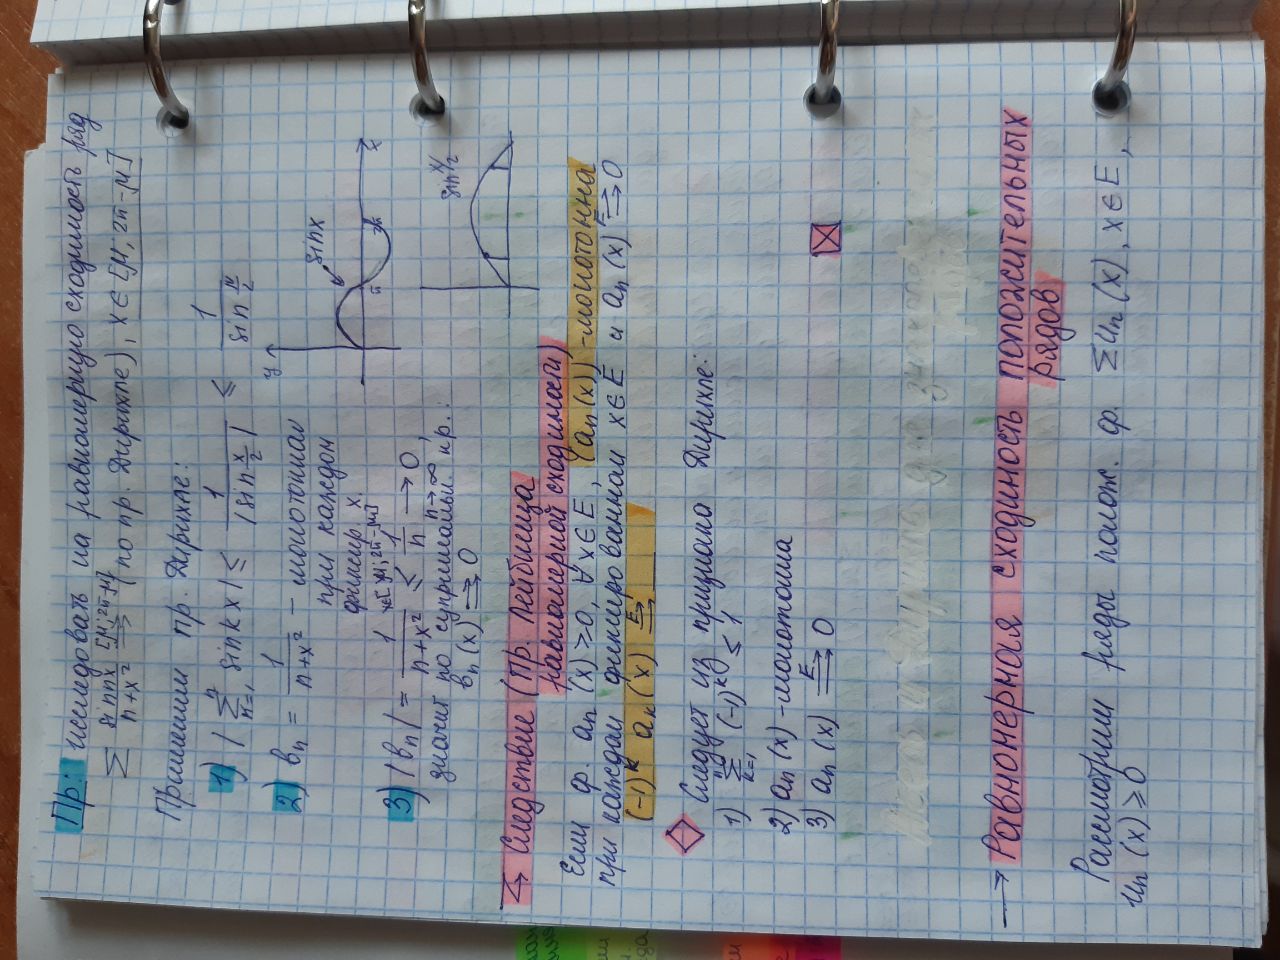 Пр: исследовать на равномерную сходимость ряд
∑ sin nx / n+x² ⇉ [μ; 2π-μ] (по пр. Дирихле), x ∈ [μ, 2π-μ]
Применим пр. Дирихле:
1) | ∑ⁿₙ₌₁ sin kx | ≤ 1 / |sin x/2| ≤ 1 / sin μ/2
2) bₙ = 1 / n+x² – монотонна
при каждом
фиксир. x.
y
sin x
π
2π
x
3) |bₙ| = 1 / n+x² ≤ x∈[μ; 2π-μ] 1/n → 0, n→∞
значит по супримальн. кр.:
bₙ(x) ⇉ 0
sin x/2
↳ Следствие (пр. Лейбница
равномерной сходимости)
Если ф. aₙ(x) ≥ 0, ∀x∈E, (aₙ(x)) - монотонна
при каждом фиксированном x∈E и aₙ(x) ⇉ᴱ 0
(-1)ᵏ aₖ(x) ⇉ᴱ __
Следует из признака Дирихле:
1) ∑ⁿₖ₌₁ (-1)ᵏ ≤ 1
2) aₙ(x) - монотонна
3) aₙ(x) ⇉ᴱ 0
→ Равномерная сходимость положительных
рядов
Рассмотрим ряды полож. ф. ∑uₙ(x), x∈E,
uₙ(x) ≥ 0